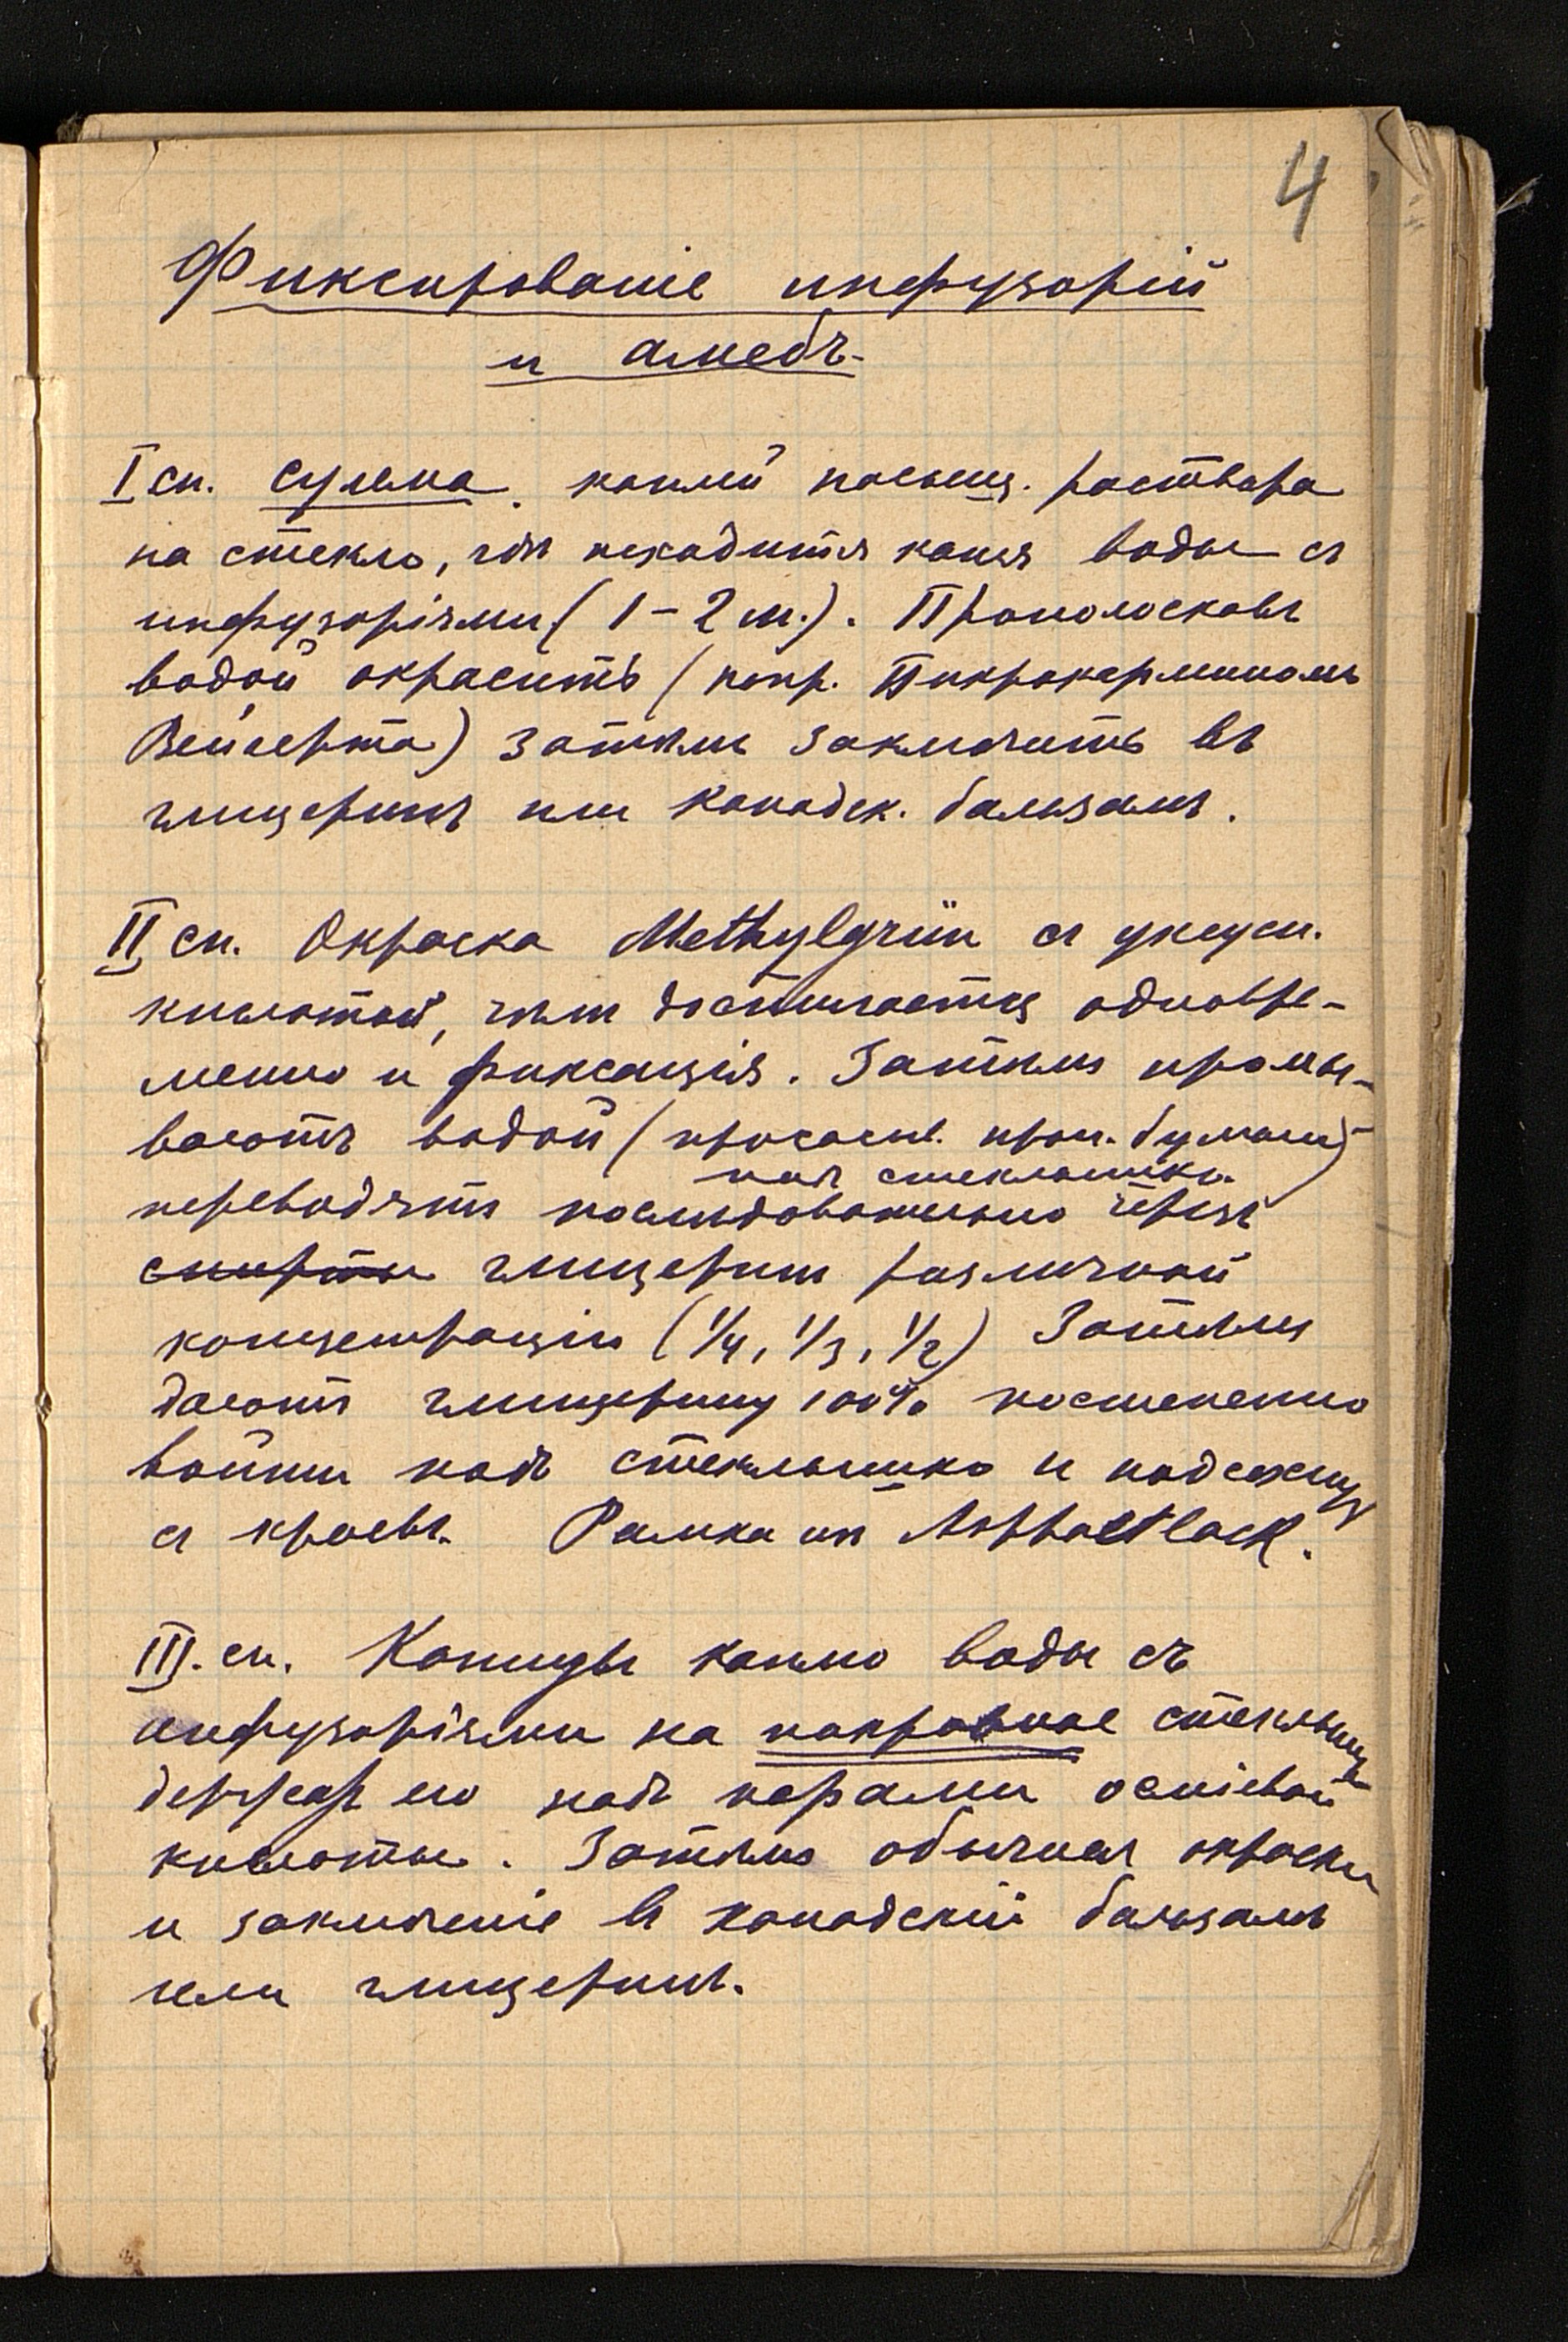 4
Фиксированіе инфузорій
и амебъ.
I сп. Сулема. каплей насыщ. раствора
на стекло, гдѣ находится капля воды съ
инфузоріями (1-2 м.). Прополоскавъ
водой окрасить (напр. Пикрокарминомъ
Вейгерта) Затѣмъ заключить въ
глицеринъ или канадск. бальзамъ.
II сп. Окраска Methylgrün съ уксусн.
кислотой, чѣмъ достигается одновре-
менно и фиксація. Затѣмъ промы-
ваютъ водой (просасыв. проп. бумаги)
под стеклышко
переводятъ послѣдовательно черезъ
спирты глицеринъ различной
концентраціи (1/4, 1/3, 1/2) Затѣмъ
даютъ глицерину 100% постепенно
войти подъ стеклышко и подсохнуть
съ краевъ. Рамка из Asphaltlack.
III. сп. Каплю воды съ
инфузоріями на покровное стеклышке
держат его надъ парами осміевой
кислоты. Затѣмъ обычная окраска
и заключеніе въ канадскій бальзамъ
или глицеринъ.